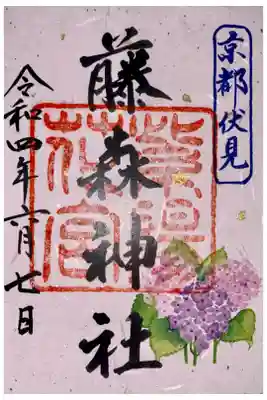 京都伏見
藤森神社
紫陽
花宮
令和四年六月七日